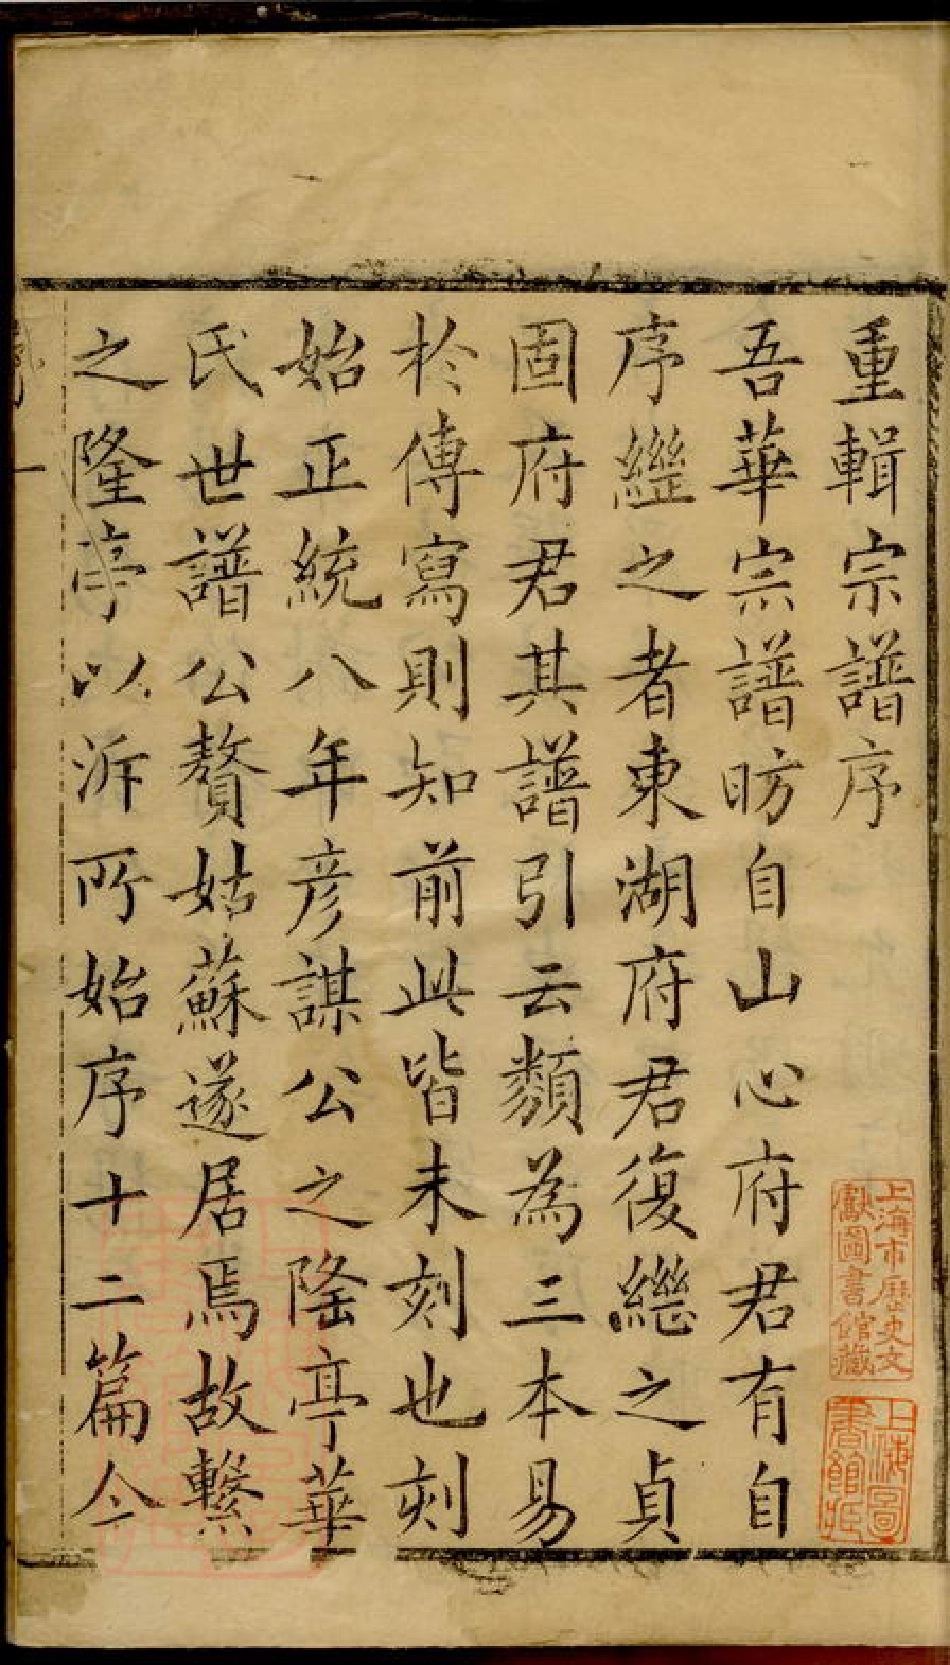 重輯宗譜序
吾華宗譜昉自山心府君有自
序繼之者東湖府君復繼之貞
固府君其譜引云類為三本易
於傳寫則知前此皆未刻也刻
始正統八年彥謀公之隆亭華
氏世譜公贅姑蘇遂居焉故繫
之隆亭以泝所始序十二篇今
上海市歷史文
獻圖書館藏
上海圖
書館藏